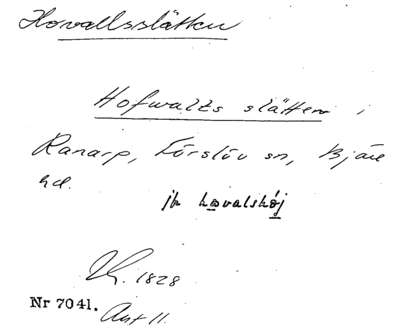 Hovallsslätten
Hofwalls slätten i
Ranarp, Förslöv sn, Bjäre
hd.
jfr hovalshöj
Lk. 1828
Nr 7041. Akt 11.